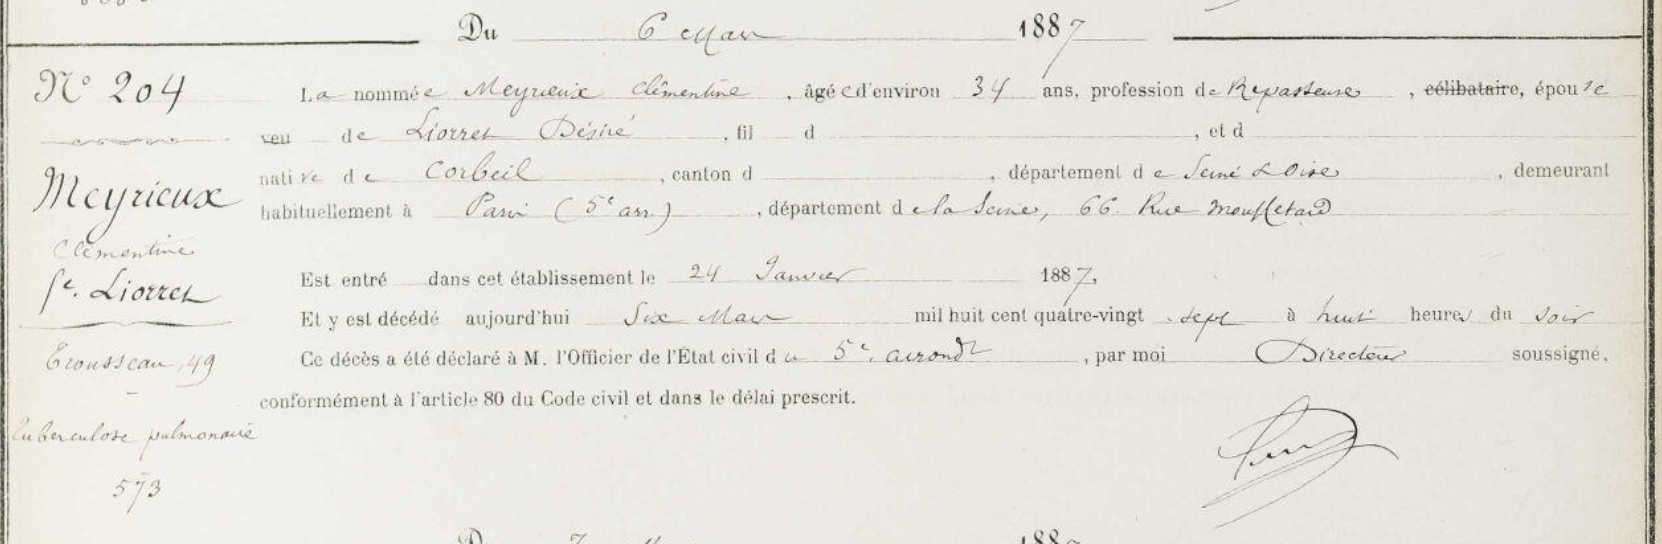 Du 6 Mars 1887
N° 204
La nommée Meyrieux Clémentine, âgée d'environ 34 ans, profession de Repasseuse, célibataire, épouse
veu de Liorret Désiré, fil d , et d
native de Corbeil, canton d , département de Seine & Oise, demeurant
Meyrieux
habituellement à Paris (5e arr.), département de la Seine, 66 Rue Mouffetard
Clémentine
fe. Liorret
Est entré dans cet établissement le 24 Janvier 1887,
Et y est décédé aujourd'hui Six Mars mil huit cent quatre-vingt sept à huit heures du soir
Trousseau, 49
Ce décès a été déclaré à M. l'Officier de l'État civil du 5e. arrondt, par moi Directeur soussigné,
conformément à l'article 80 du Code civil et dans le délai prescrit.
Tuberculose pulmonaire
573
Du 7 1887